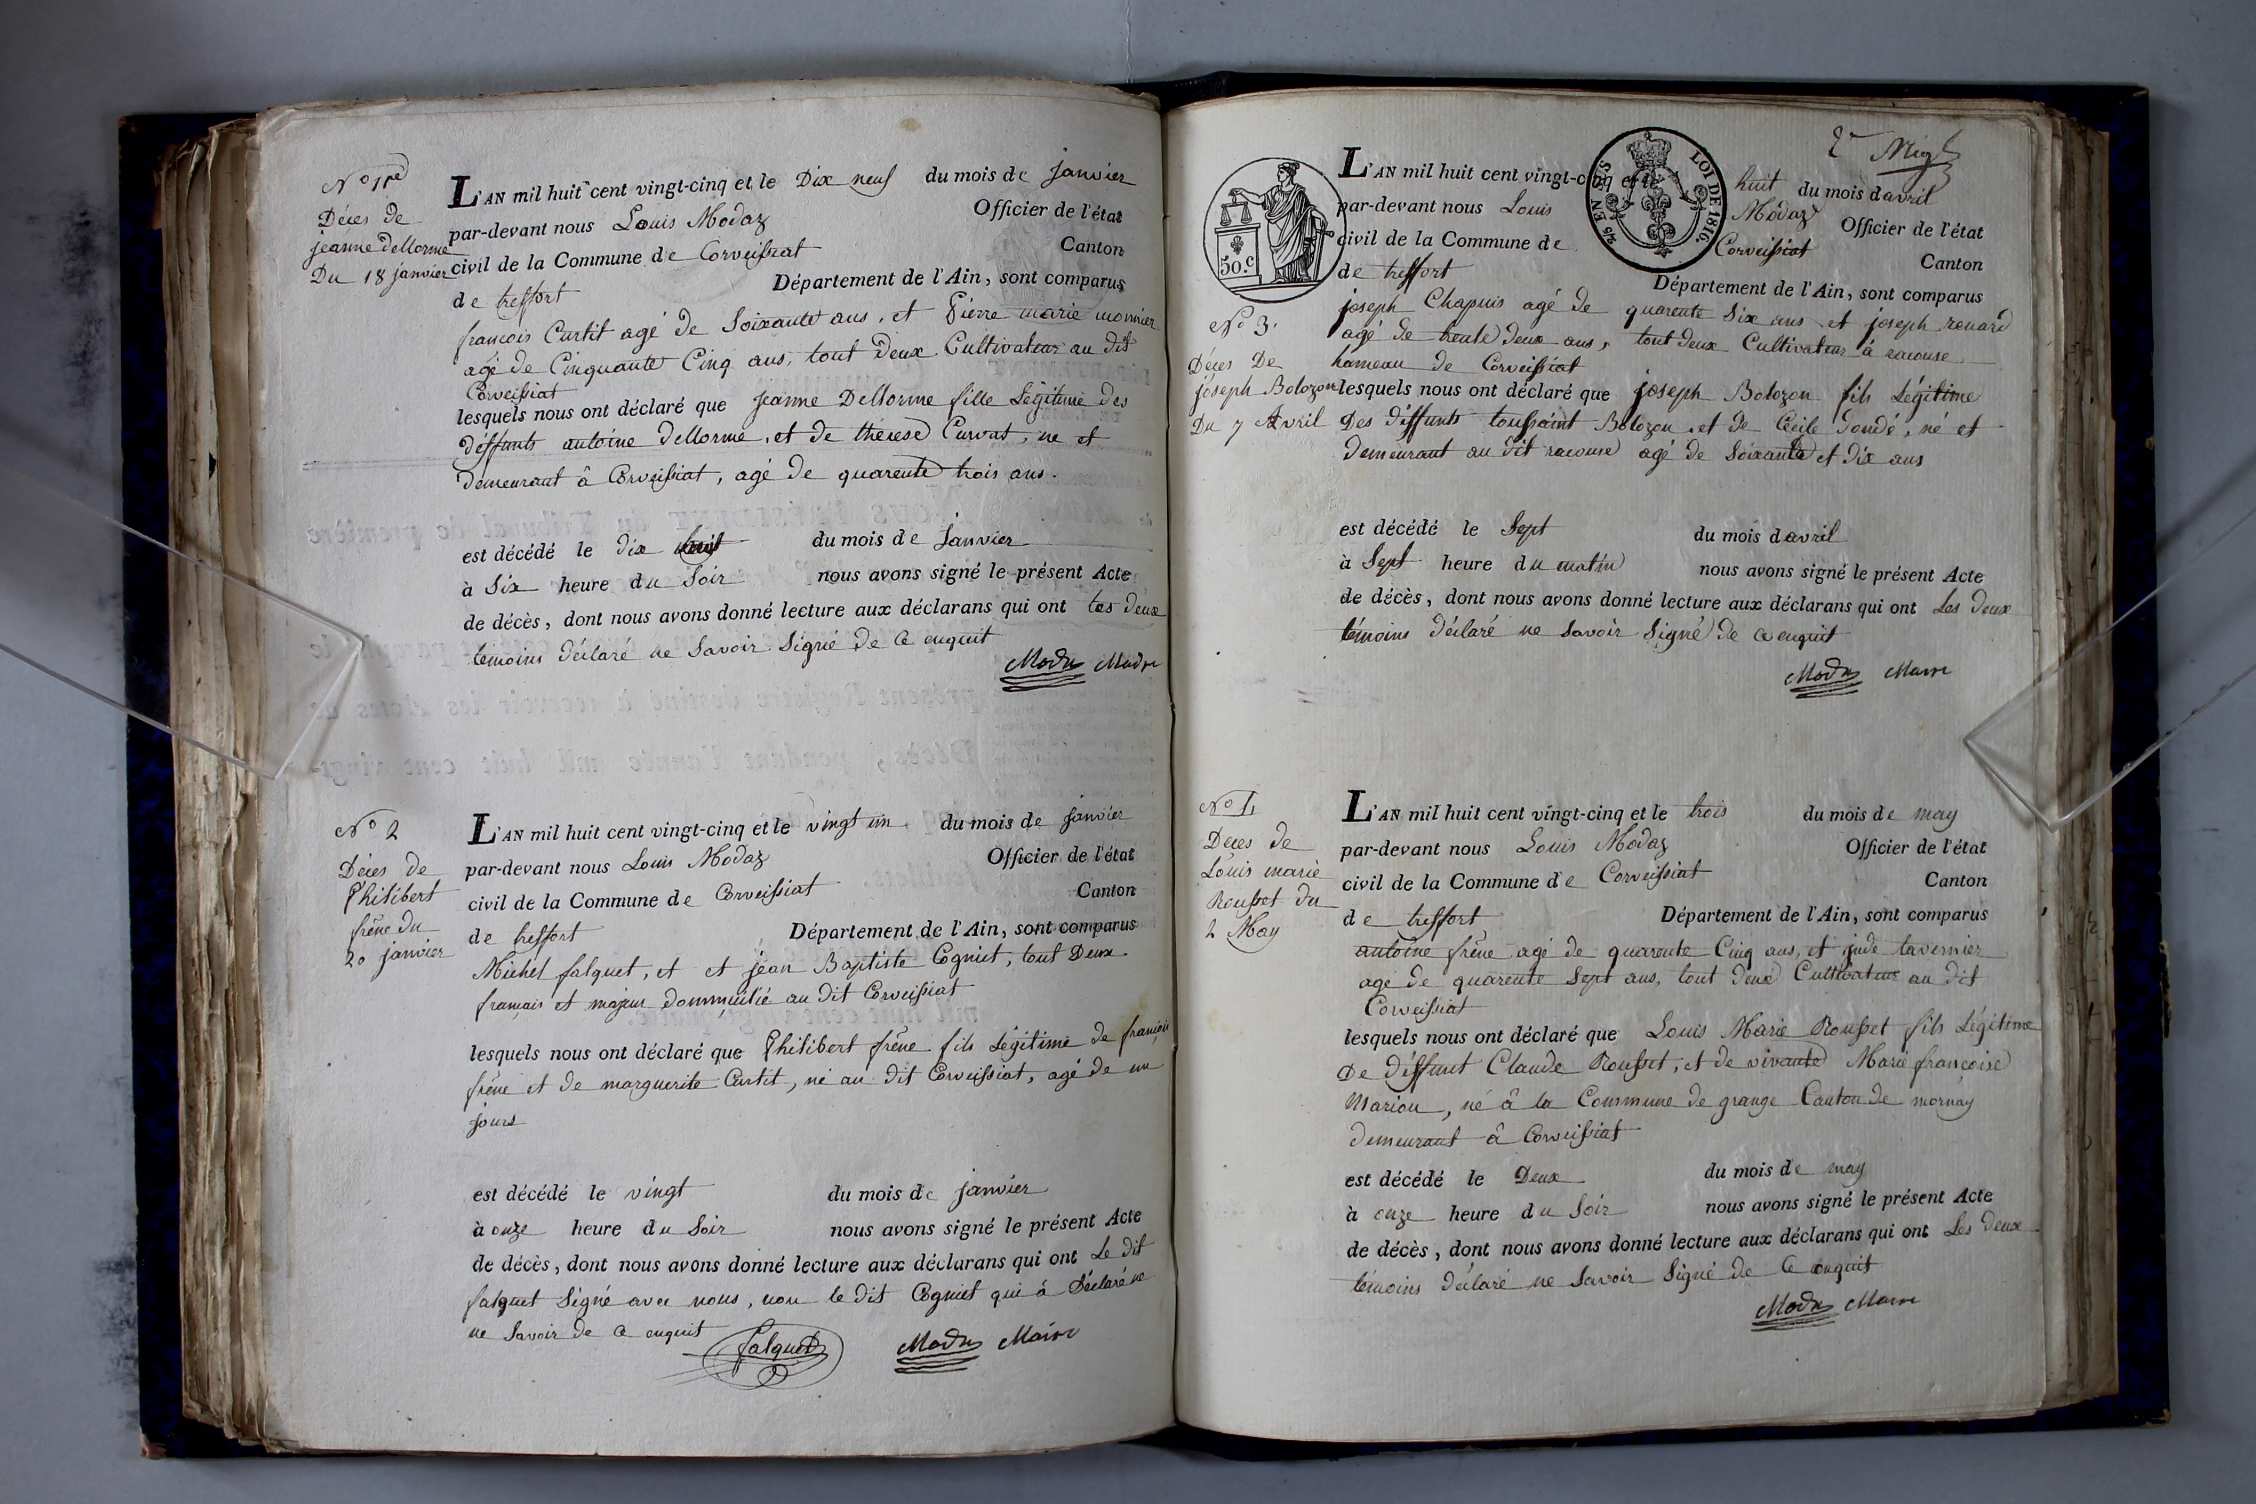 N° 1re
Déces de
jeanne dellorme
Du 18 janvier
L'AN mil huit cent vingt-cinq et le Dix neuf du mois de janvier
par-devant nous Louis Modaz Officier de l'état
civil de la Commune de Corveissiat Canton
de treffort Département de l'Ain, sont comparus
francois Curtit agé de Soixante ans, et Pierre marie monnier
agé de Cinquante Cinq ans, tout Deux Cultivateur au dit
Corveissiat
lesquels nous ont déclaré que jeanne Dellorme fille Légitime des
déffunts antoine dellorme, et de therese Curvat, ne et
demeurant â Corveissiat, agé de quarente trois ans.
est décédé le dix huit du mois de janvier
à Six heure du Soir nous avons signé le présent Acte
de décès, dont nous avons donné lecture aux déclarans qui ont les deux
temoins déclaré ne Savoir Signé de Ce enquit
Modaz Maire
N° 2
Déces de
Philibert
frêne du
20 janvier
L'AN mil huit cent vingt-cinq et le vingt un du mois de janvier
par-devant nous Louis Modaz Officier de l'état
civil de la Commune de Corveissiat Canton
de treffort Département de l'Ain, sont comparus
Michel falquet, et et jean Baptiste Cogniet, tout Deux
français et majeur dommicilié au dit Corveissiat
lesquels nous ont déclaré que Philibert frêne fils Légitime de françois
frêne et de marguerite Curtit, né au dit Corveissiat, agé de un
jours
est décédé le vingt du mois de janvier
à onze heure du Soir nous avons signé le présent Acte
de décès, dont nous avons donné lecture aux déclarans qui ont Le dit
falquet Signé avec nous, non le dit Cogniet qui â Déclaré ne
ne Savoir de Ce enquit
falquet Modaz Maire
50.c
2/6 EN SUS
LOI DE 1816.
L'AN mil huit cent vingt-cinq et le huit du mois davril
par-devant nous Louis Modaz Officier de l'état
civil de la Commune de Corveissiat Canton
de treffort Département de l'Ain, sont comparus
N° 3.
Déces De
joseph Bolozon
Du 7 Avril
joseph Chapuis agé de quarente Six ans et joseph renard
agé de trente deux ans, tout deux Cultivateur â racouse
hameau de Corveissiat
lesquels nous ont déclaré que joseph Bolozon fils Légitime
Des déffunts toussaint Bolozon, et de Cécile dondé, né et
demeurant au dit racouse agé de Soixante et dix ans
est décédé le Sept du mois davril
à Sept heure du matin nous avons signé le présent Acte
de décès, dont nous avons donné lecture aux déclarans qui ont Les deux
témoins déclaré ne Savoir Signé de Ce enquit
Modaz Maire
N° 4
Déces de
Louis marie
Rousset du
2 May
L'AN mil huit cent vingt-cinq et le trois du mois de may
par-devant nous Louis Modaz Officier de l'état
civil de la Commune de Corveissiat Canton
de treffort Département de l'Ain, sont comparus
antoine frêne agé de quarente Cinq ans, et jude tavernier
agé de quarente Sept ans, tout deux Cultivateur au dit
Corveissiat
lesquels nous ont déclaré que Louis Marie Rousset fils Légitime
De déffunt Claude Rousset, et de vivante Marie francoise
Marion, né â la Commune de grange Canton de mornay
demeurant â Corveissiat
est décédé le Deux du mois de may
à onze heure du Soir nous avons signé le présent Acte
de décès, dont nous avons donné lecture aux déclarans qui ont Les deux
témoins déclaré ne Savoir Signé de Ce enquit
Modaz Maire